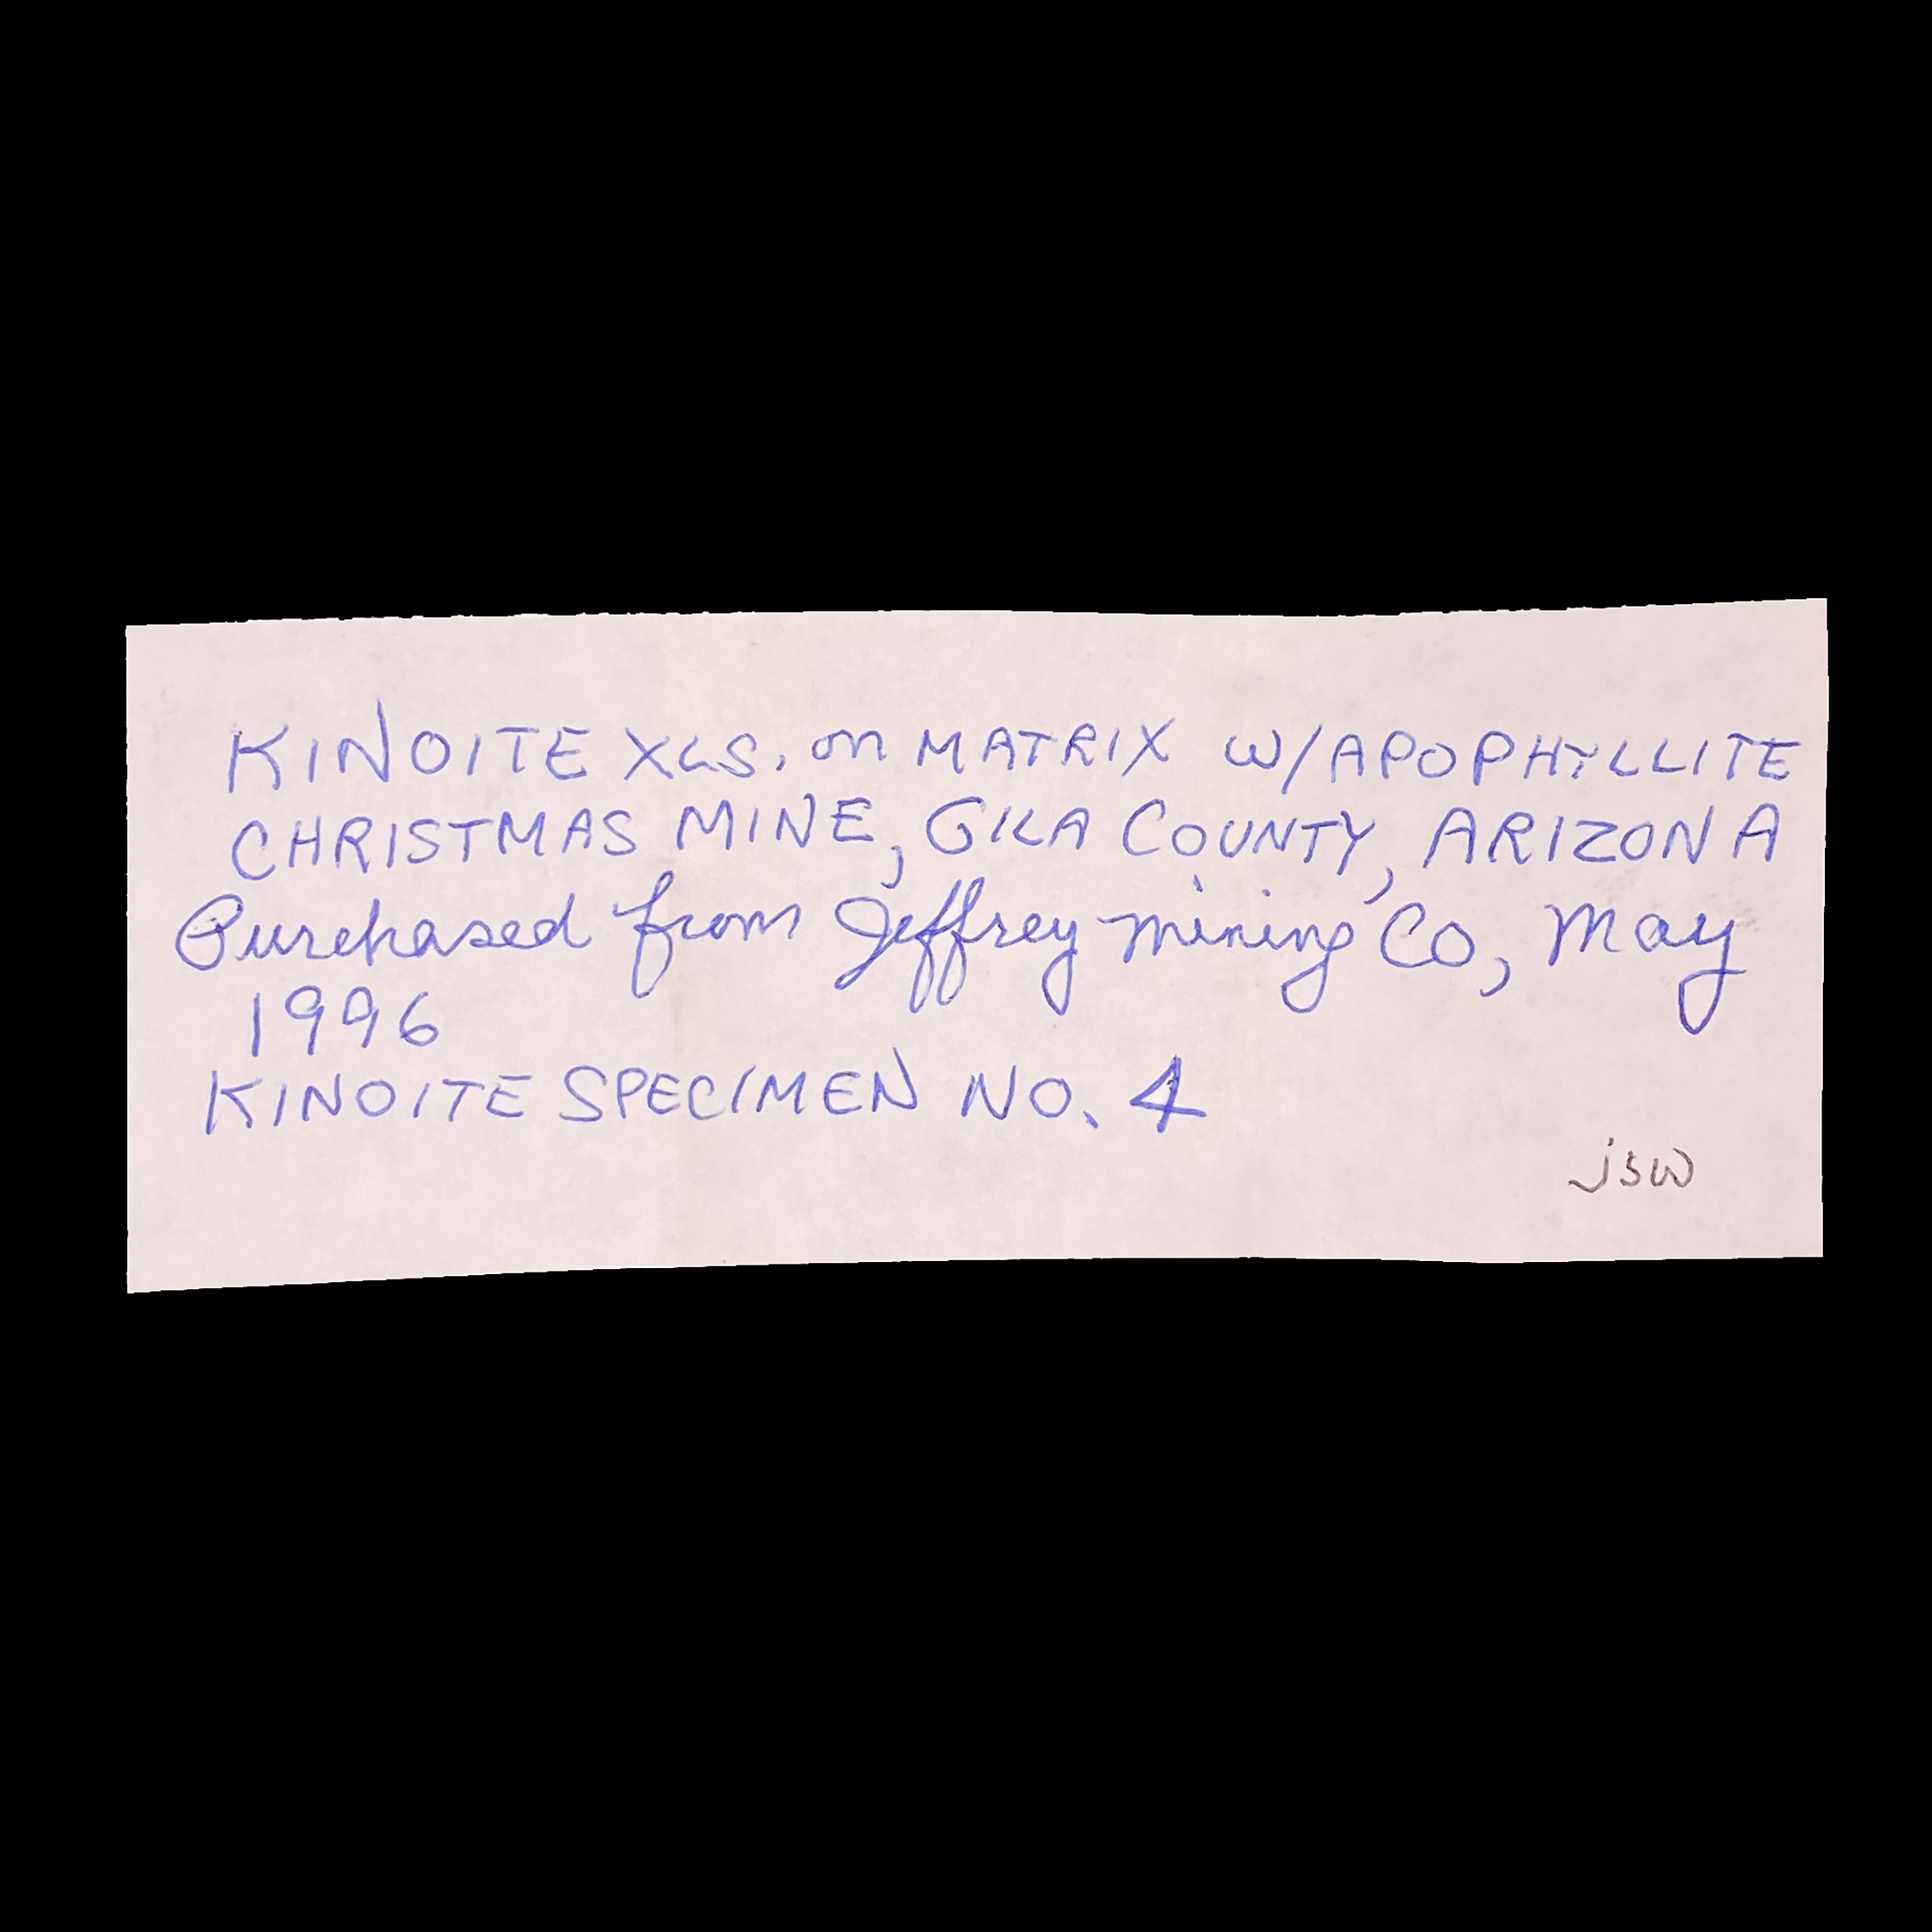 KINOITE XLS. on MATRIX W/APOPHYLLITE
CHRISTMAS MINE, GILA COUNTY, ARIZONA
Purchased from Jeffrey Mining Co, May
1996
KINOITE SPECIMEN NO. 4
jsw